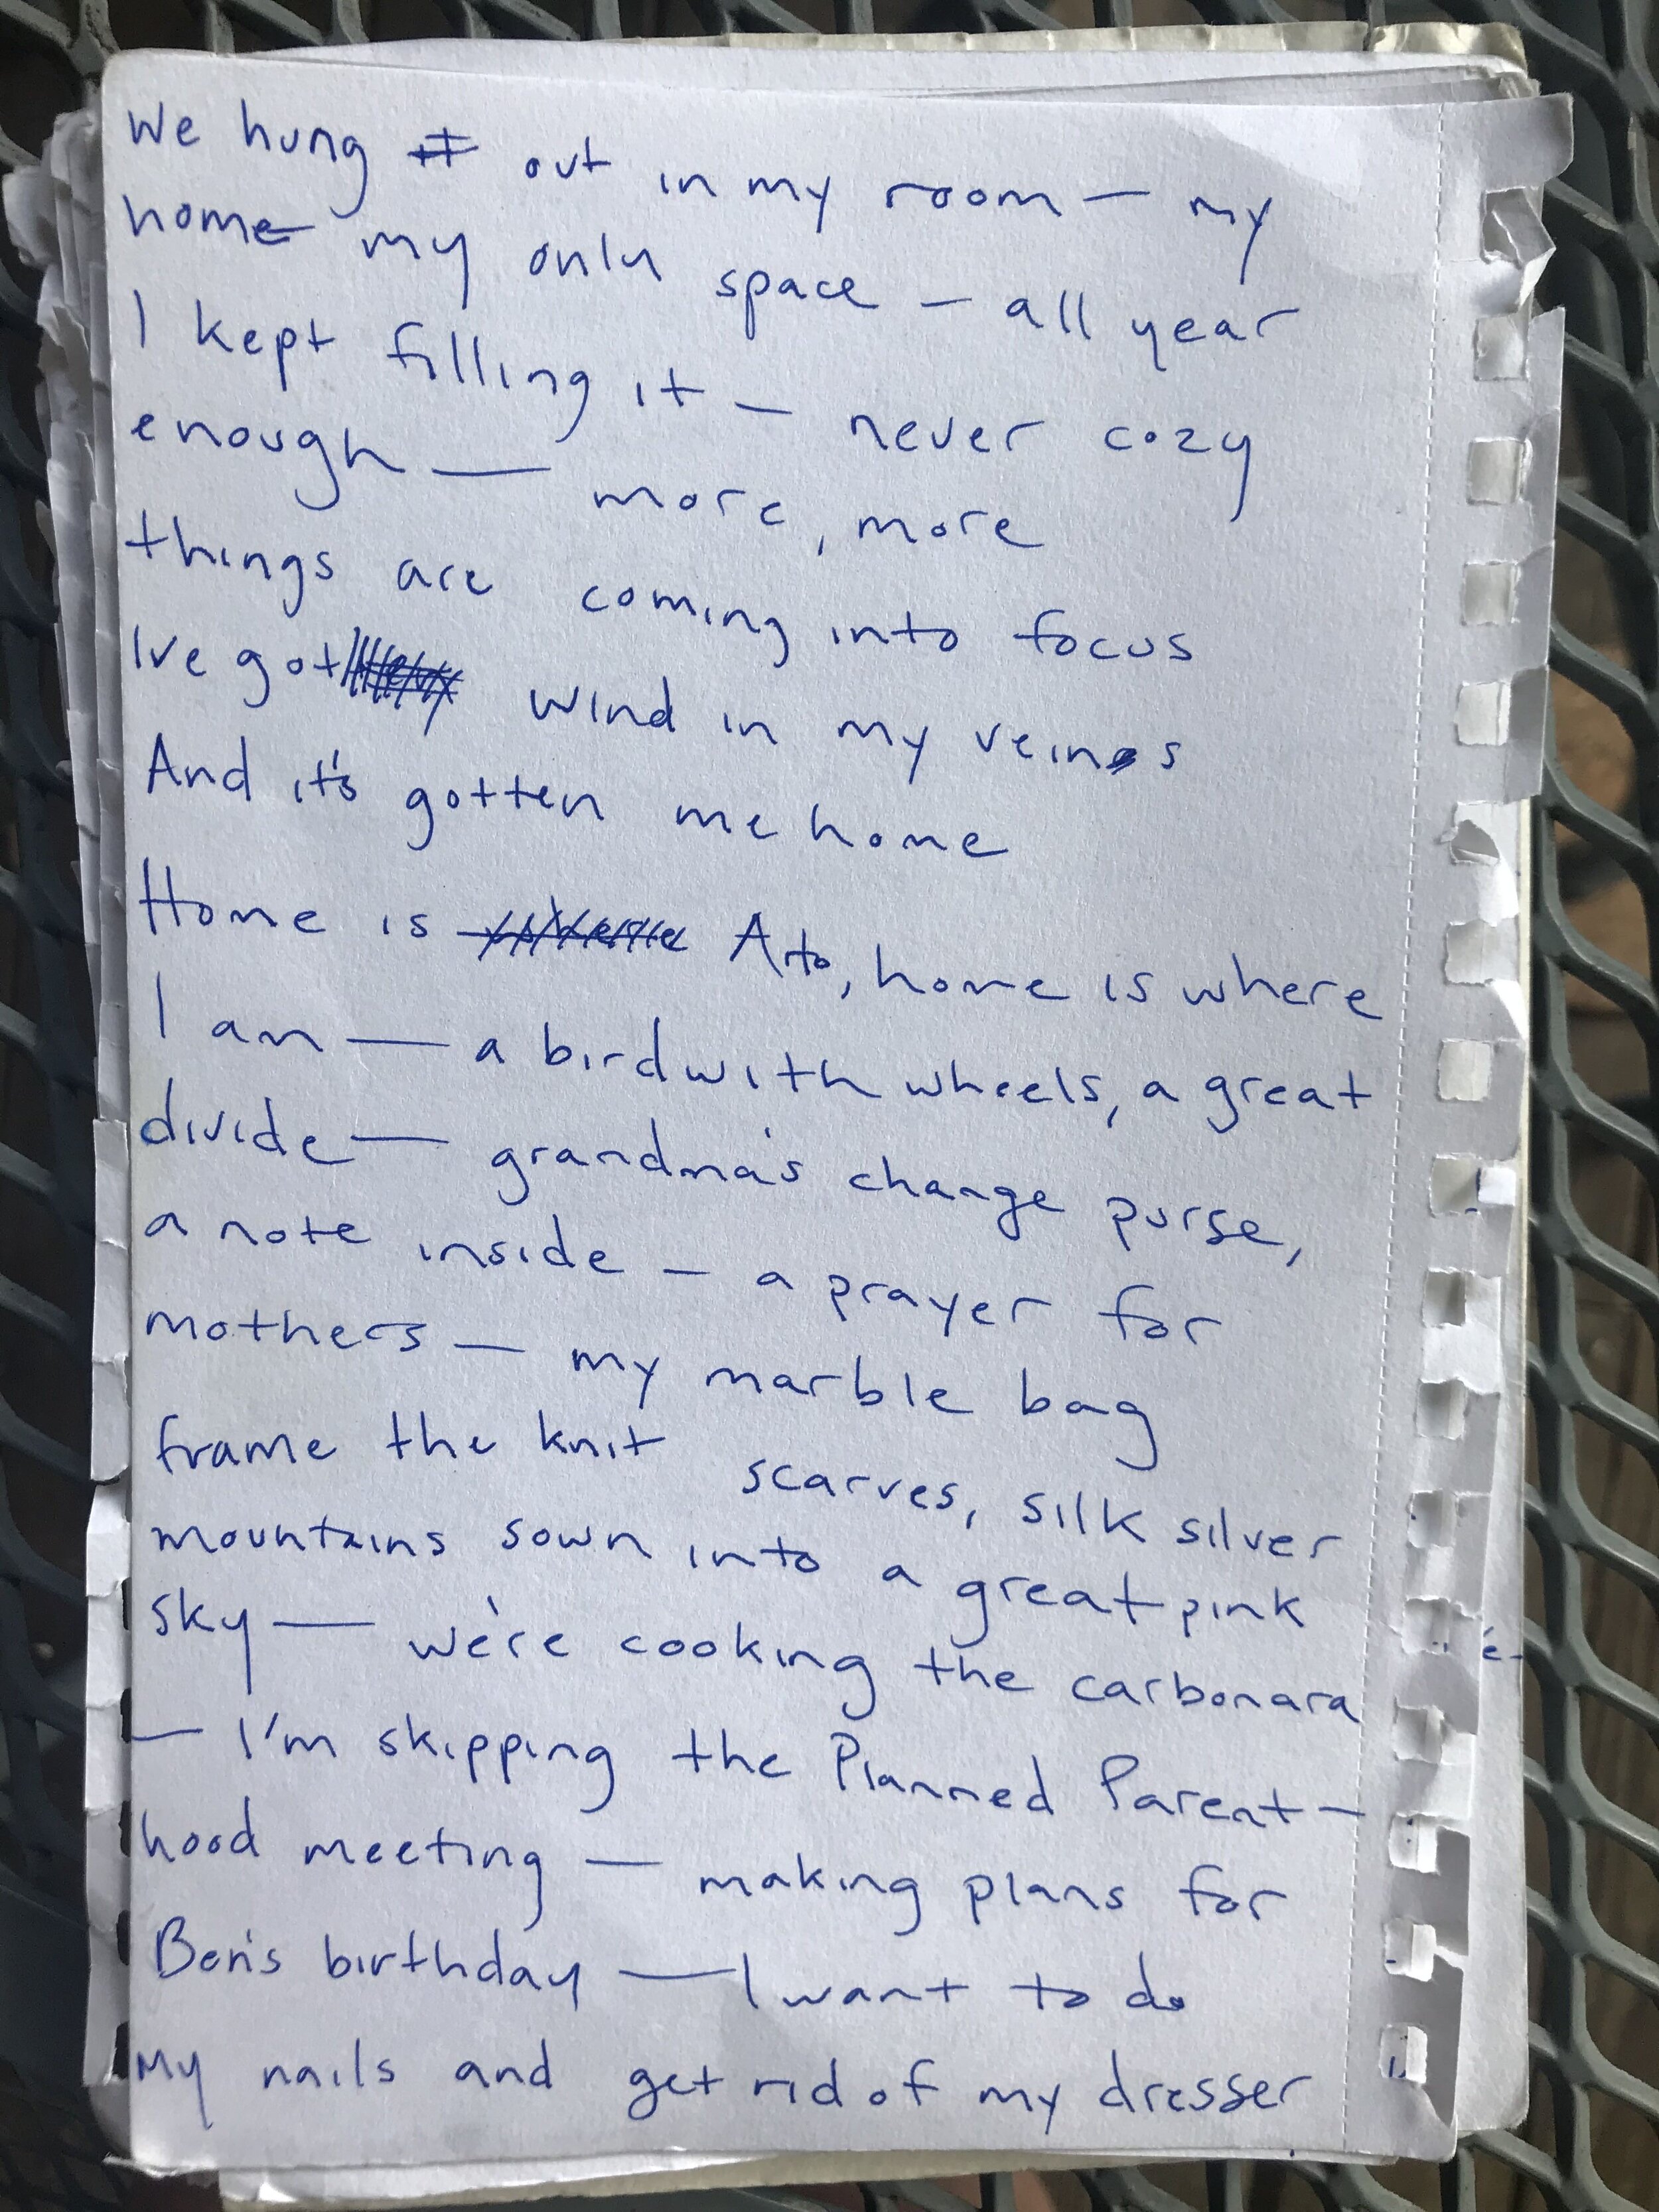 We hung out in my room — my
home my only space — all year
I kept filling it — never cozy
enough — more, more
things are coming into focus
Ive got wind in my veins
And it's gotten me home
Home is Arto, home is where
I am — a bird with wheels, a great
divide — grandma's change purse,
a note inside — a prayer for
mothers — my marble bag
frame the knit scarves, silk silver
mountains sown into a great pink
sky — we're cooking the carbonara
— I'm skipping the Planned Parent-
hood meeting — making plans for
Ben's birthday — I want to do
My nails and get rid of my dresser